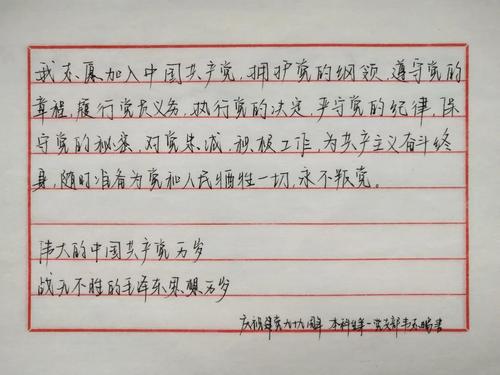 我志愿加入中国共产党，拥护党的纲领，遵守党的
章程，履行党员义务，执行党的决定，严守党的纪律，保
守党的秘密，对党忠诚，积极工作，为共产主义奋斗终
身，随时准备为党和人民牺牲一切，永不叛党。
伟大的中国共产党万岁
战无不胜的毛泽东思想万岁
庆祝建党九十九周年 本科生第一党支部韦